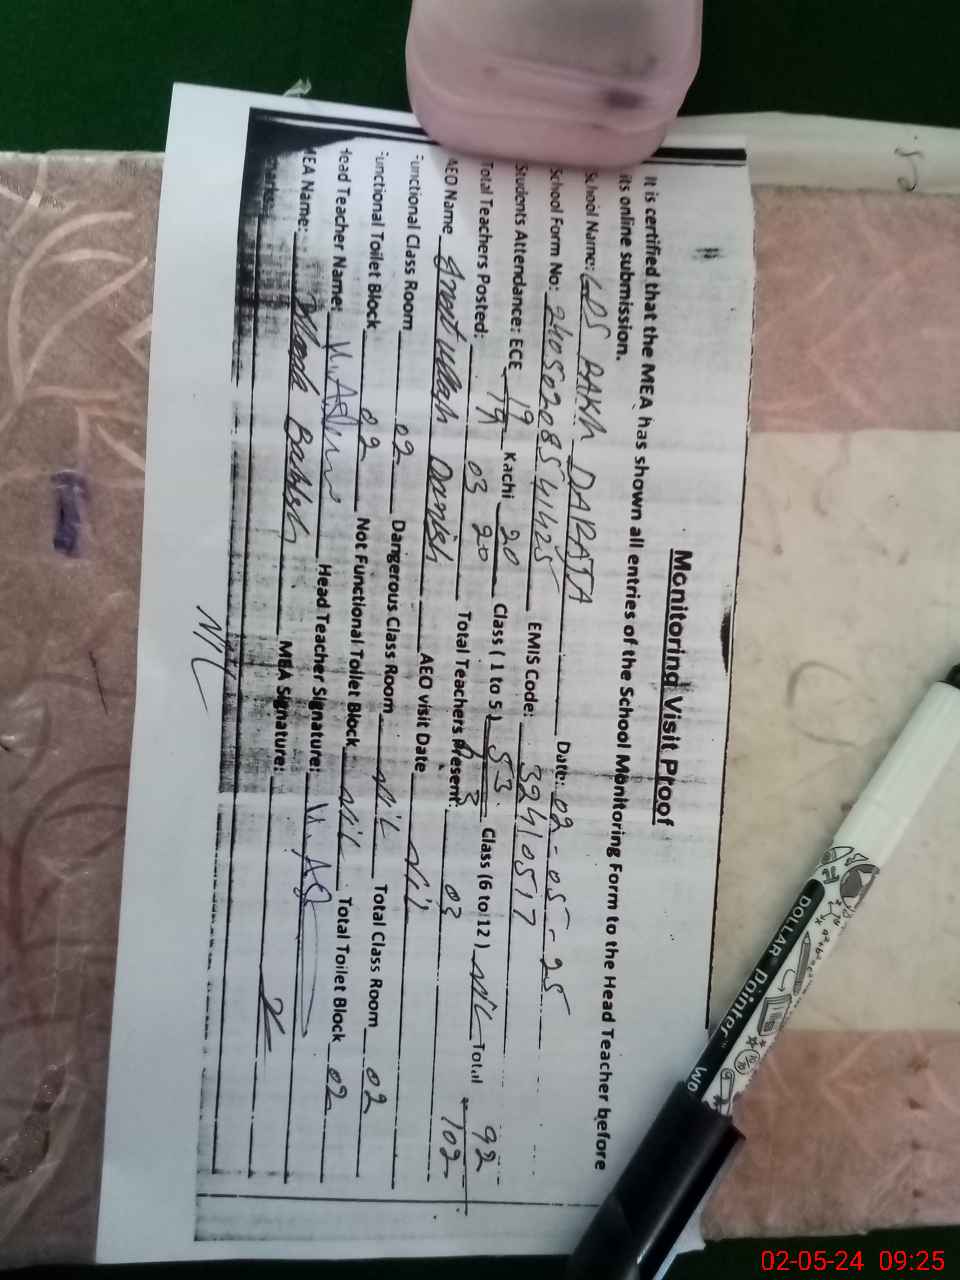 Monitoring Visit Proof
It is certified that the MEA has shown all entries of the School Monitoring Form to the Head Teacher before
its online submission.
School Name: GPS DARATA Date: 02-05-25
School Form No: EMIS Code: 32410517
Students Attendance: ECE 19 Kachi 20 Class ( 1 to 5 ) 53 Class (6 to 12 ) Nil Total 92
19 20 3 102
Total Teachers Posted: 03 Total Teachers Present: 03
AEO Name Danish AEO visit Date Nil
Functional Class Room 02 Dangerous Class Room Nil Total Class Room 02
Functional Toilet Block 02 Not Functional Toilet Block Nil Total Toilet Block 02
Head Teacher Name: Head Teacher Signature:
MEA Name: MEA Signature:
Remarks:
Nil
DOLLAR Pointer
02-05-24 09:25